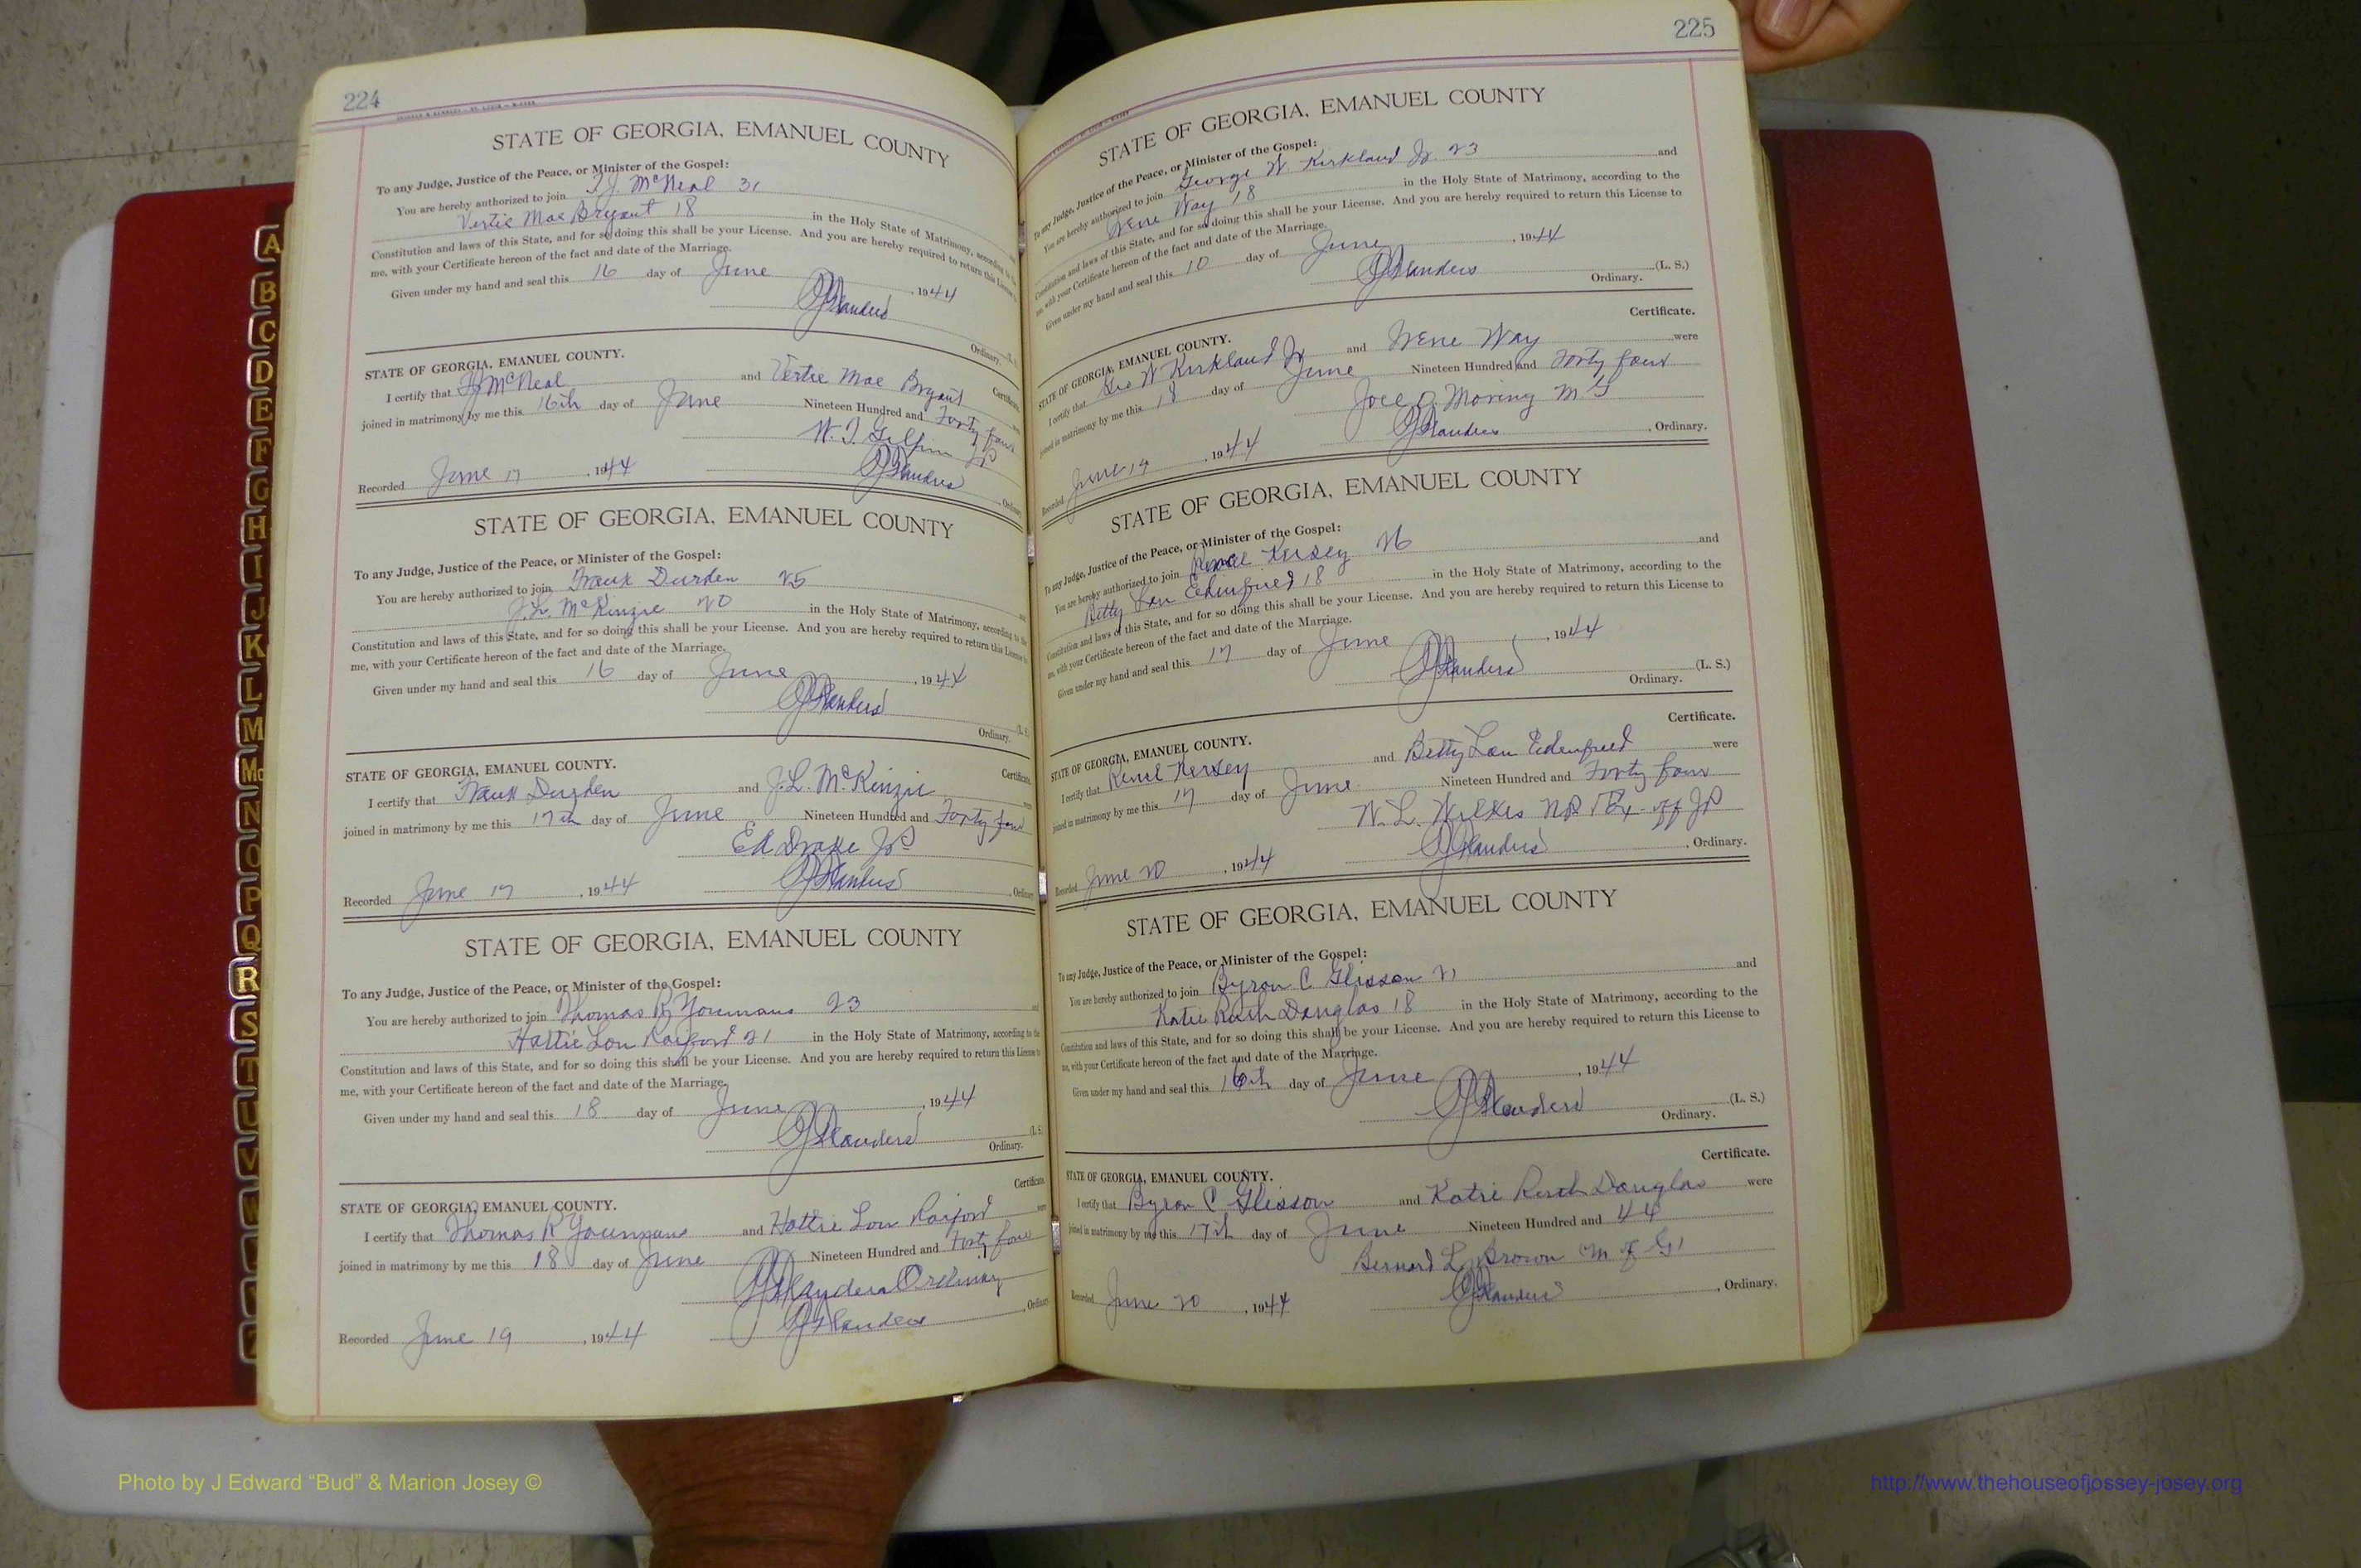 224
STATE OF GEORGIA, EMANUEL COUNTY
To any Judge, Justice of the Peace, or Minister of the Gospel:
You are hereby authorized to join J. McNeal 31
Vertie Mae Bryant 18 in the Holy State of Matrimony, according to the
Constitution and laws of this State, and for so doing this shall be your License. And you are hereby required to return this License
me, with your Certificate hereon of the fact and date of the Marriage.
Given under my hand and seal this 16 day of June, 1944
Ordinary.
STATE OF GEORGIA, EMANUEL COUNTY.
Certificate.
I certify that McNeal and Vertie Mae Bryant
joined in matrimony by me this 16th day of June Nineteen Hundred and Forty four
W. J. JP
Recorded June 17, 1944
, Ordinary
STATE OF GEORGIA, EMANUEL COUNTY
To any Judge, Justice of the Peace, or Minister of the Gospel:
You are hereby authorized to join Frank Durden 25
J. L. McKinzie 20 in the Holy State of Matrimony, according to the
Constitution and laws of this State, and for so doing this shall be your License. And you are hereby required to return this License
me, with your Certificate hereon of the fact and date of the Marriage.
Given under my hand and seal this 16 day of June, 1944
(L. S.
Ordinary.
Certificate.
STATE OF GEORGIA, EMANUEL COUNTY.
I certify that Frank Durden and J. L. McKinzie
joined in matrimony by me this 17th day of June Nineteen Hundred and Forty four
Ed Drake JP
Recorded June 17, 1944
, Ordinary
STATE OF GEORGIA, EMANUEL COUNTY
To any Judge, Justice of the Peace, or Minister of the Gospel:
You are hereby authorized to join Thomas R Youmans 23
Hattie Lou Raiford 21 in the Holy State of Matrimony, according to the
Constitution and laws of this State, and for so doing this shall be your License. And you are hereby required to return this License
me, with your Certificate hereon of the fact and date of the Marriage.
Given under my hand and seal this 18 day of June, 1944
(L. S.
Ordinary.
Certificate.
STATE OF GEORGIA, EMANUEL COUNTY.
I certify that Thomas R Youmans and Hattie Lou Raiford
joined in matrimony by me this 18 day of June Nineteen Hundred and Forty four
Flanders Ordinary
Flanders, Ordinary
Recorded June 19, 1944
225
STATE OF GEORGIA, EMANUEL COUNTY
To any Judge, Justice of the Peace, or Minister of the Gospel:
You are hereby authorized to join George W. Kirkland Jr. 23 and
Irene Way 18 in the Holy State of Matrimony, according to the
Constitution and laws of this State, and for so doing this shall be your License. And you are hereby required to return this License to
me, with your Certificate hereon of the fact and date of the Marriage.
Given under my hand and seal this 10 day of June, 1944
Flanders (L. S.)
Ordinary.
Certificate.
STATE OF GEORGIA, EMANUEL COUNTY.
I certify that Geo W Kirkland Jr and Irene Way were
joined in matrimony by me this 18 day of June Nineteen Hundred and Forty four
M G
Flanders, Ordinary.
Recorded June 19, 1944
STATE OF GEORGIA, EMANUEL COUNTY
To any Judge, Justice of the Peace, or Minister of the Gospel:
You are hereby authorized to join Kersey 26 and
Betty Lou Edenfield 18 in the Holy State of Matrimony, according to the
Constitution and laws of this State, and for so doing this shall be your License. And you are hereby required to return this License to
me, with your Certificate hereon of the fact and date of the Marriage.
Given under my hand and seal this 17 day of June, 1944
Flanders (L. S.)
Ordinary.
Certificate.
STATE OF GEORGIA, EMANUEL COUNTY.
I certify that Kersey and Betty Lou Edenfield were
joined in matrimony by me this 17 day of June Nineteen Hundred and Forty four
W. L. Wilkes NP & Ex-off JP
Flanders, Ordinary.
Recorded June 20, 1944
STATE OF GEORGIA, EMANUEL COUNTY
To any Judge, Justice of the Peace, or Minister of the Gospel:
You are hereby authorized to join Byron C Glisson 21 and
Katie Ruth Douglas 18 in the Holy State of Matrimony, according to the
Constitution and laws of this State, and for so doing this shall be your License. And you are hereby required to return this License to
me, with your Certificate hereon of the fact and date of the Marriage.
Given under my hand and seal this 16th day of June, 1944
Flanders (L. S.)
Ordinary.
Certificate.
STATE OF GEORGIA, EMANUEL COUNTY.
I certify that Byron C Glisson and Katie Ruth Douglas were
joined in matrimony by me this 17th day of June Nineteen Hundred and 44
Bernard L. Brown M of G
Flanders, Ordinary.
Recorded June 20, 1944
A
B
C
D
E
F
G
H
I
J
K
L
M
Mc
N
O
P
Q
R
S
T
U
V
Photo by J Edward “Bud” & Marion Josey ©
http://www.thehouseofjossey-josey.org